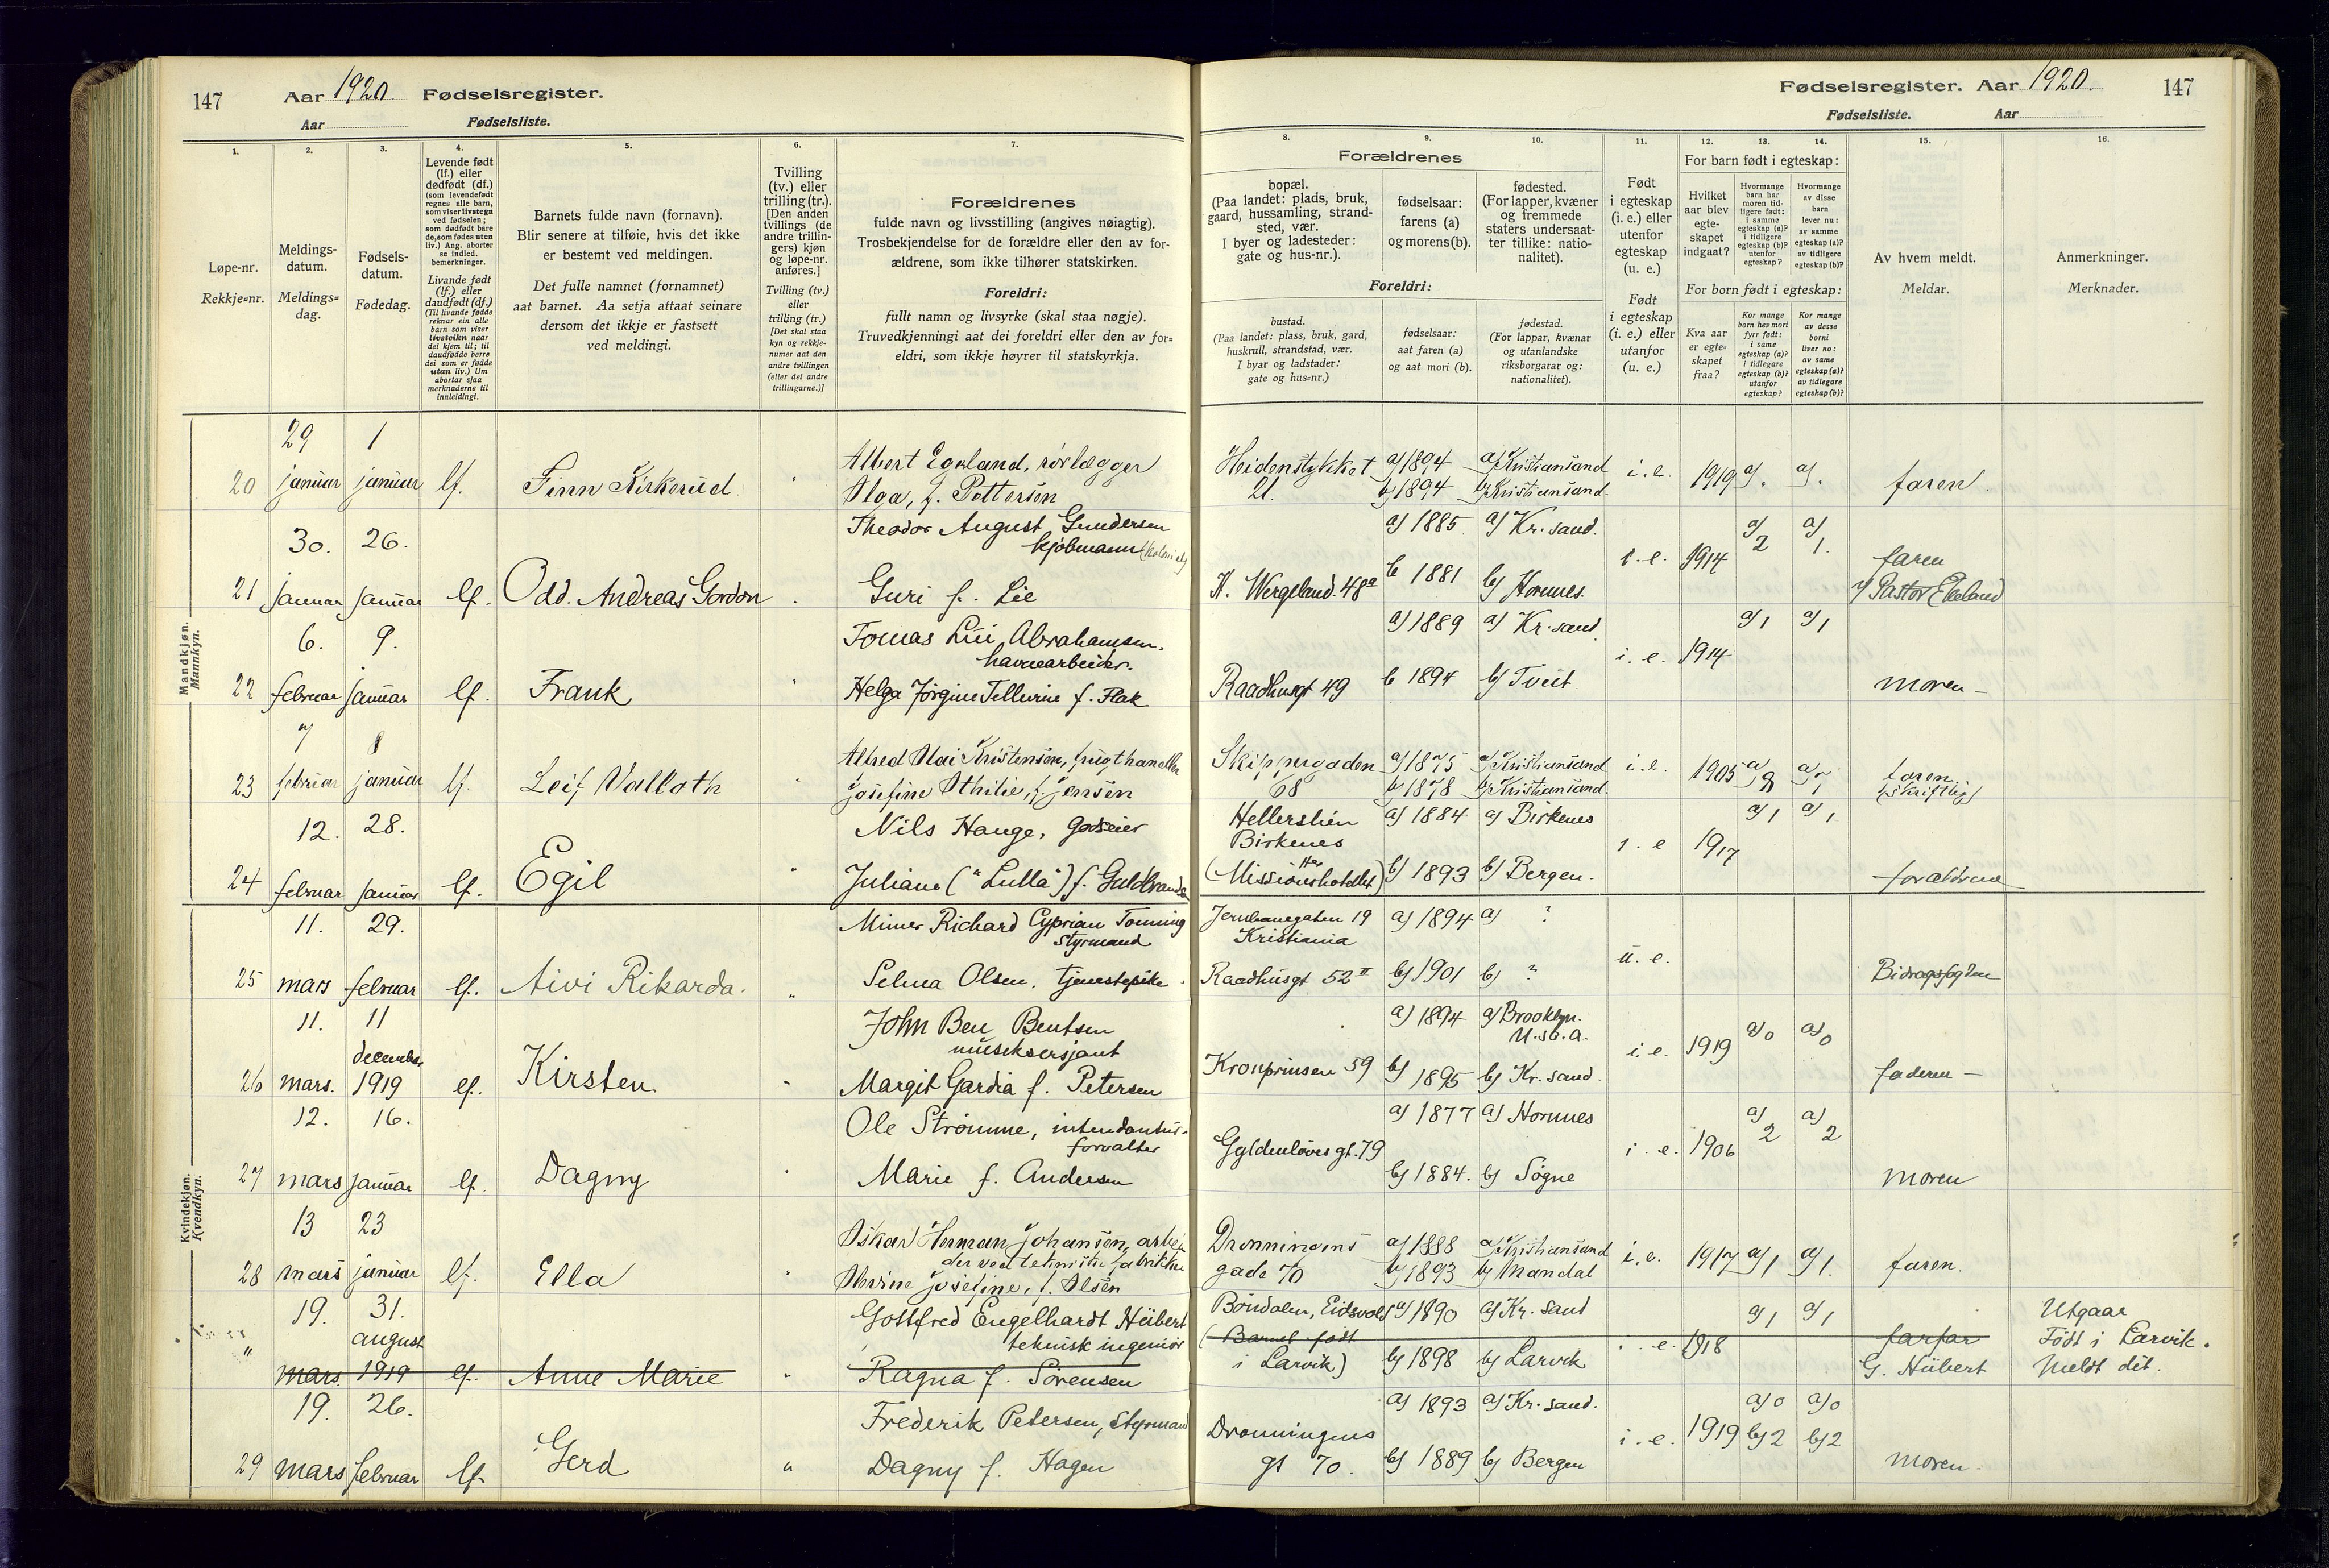 147
Aar 1920. Fødselsregister.
Aar Fødselsliste.
Fødselsregister. Aar 1920. 147
Fødselsliste. Aar
1.
Løpe-nr.
Rekkje=nr.
2.
Meldings-
datum.
Meldings=
dag.
3.
Fødsels-
datum.
Fødedag.
4.
Levende født
(lf.) eller
dødfødt (df.)
(som levendefødt
regnes alle barn,
som viser livstegn
ved fødselen;
som dødfødt bare
de, som fødes uten
liv.) Ang. aborter
se indled.
bemerkninger.
Livande født
(lf.) eller
daudfødt (df.)
(Til livande fødde
reknar ein alle
barn som viser
livsteikn naar
dei kjem til; til
daudfødde berre
dei som er fødde
utan liv.) Um
abortar sjaa
merknaderne til
innleidingi.
5.
Barnets fulde navn (fornavn).
Blir senere at tilføie, hvis det ikke
er bestemt ved meldingen.
Det fulle namnet (fornamnet)
aat barnet. Aa setja attaat seinare
dersom det ikkje er fastsett
ved meldingi.
6.
Tvilling
(tv.) eller
trilling (tr.).
[Den anden
tvillings (de
andre trillin-
gers) kjøn
og løpe-nr.
anføres.]
Tvilling (tv.)
eller
trilling (tr.)
[Det skal staa
kyn og rekkje-
numer aat den
andre tvillingen
(eller dei andre
trillingarne.)]
7.
Forældrenes
fulde navn og livsstilling (angives nøiagtig).
Trosbekjendelse for de forældre eller den av for-
ældrene, som ikke tilhører statskirken.
Foreldri:
fullt namn og livsyrke (skal staa nøgje).
Truvedkjenningi aat dei foreldri eller den av for=
eldri, som ikkje høyrer til statskyrkja.
Forældrenes
8.
bopæl.
(Paa landet: plads, bruk,
gaard, hussamling, strand-
sted, vær.
I byer og ladesteder:
gate og hus-nr.).
9.
fødselsaar:
farens (a)
og morens (b).
10.
fødested.
(For lapper, kvæner
og fremmede
staters undersaat-
ter tillike: natio-
nalitet).
Foreldri:
bustad.
(Paa landet: plass, bruk, gard,
huskrull, strandstad, vær.
I byar og ladstader:
gate og hus=nr.)
fødselsaar:
aat faren (a)
og aat mori (b).
fødestad.
(For lappar, kvænar
og utanlandske
riksborgarar og:
nationalitet).
11.
Født
i egteskap
(i. e.) eller
utenfor
egteskap
(u. e.)
Født
i egteskap
(i. e.) eller
utanfor
(u. e.)
12. 13. 14.
For barn født i egteskap:
Hvilket
aar blev
egte-
skapet
indgaat?
Hvormange
barn har
moren tid-
ligere født:
i samme
egteskap (a)?
i tidligere
egteskap (b)?
utenfor
egteskap?
Hvormange
av disse
barn
lever nu:
av samme
egteskap (a)?
av tidligere
egteskap (b)?
For born født i egteskap:
Kva aar
er egte=
skapet
fraa?
Kor mange
born hev mori
fyrr født:
i same
egteskap (a)?
i tidlegare
egteskap (b)?
utanfor
egteskap?
Kor mange
av desse
borni
liver no:
av same
egteskap (a)?
av tidlegare
egteskap (b)?
15.
Av hvem meldt.
Meldar.
16.
Anmerkninger.
Merknader.
Mandkjøn.
Mannkyn.
29 1
20 januar januar lf. Finn Kirkerud. Albert Egeland, rørlægger
Olga, f. Pettersen
Heidenstykket a) 1894 a) Kristiansand i. e. 1919 a) . a) . faren.
21. b) 1894 b) Kristiansand.
30. 26. Theodor August Gundersen
kjøbmann
21 januar januar lf. Odd. Andreas Gordon Guri f. Lie
a) 1885 a) Kr. sand. a) 2 a) 1.
H. Wergeland. 48a b 1881 b) Hornnes. i. e. 1914 faren
v/ Pastor Ekeland
6. 9. Tomas Lui Abrahamsen.
havnearbeider.
22 februar januar lf. Frank Helga Jørgine Tellevine f. Flak
a) 1889 a) Kr. sand. i. e. 1914 a) 1 a) 1
Raadhusgt 49 b 1894 b) Tveit moren
7 8
23 februar januar lf. Leif Valloth Alfred Olai Kristensen, frugthandler
Josefine Othilie, f. Jensen
Skippergaden a) 1875 a) Kristiansand i. e. 1905 a) 8 a) 7 faren
68 b) 1878 b) Kristiansand. (skriftlig)
12. 28. Nils Hauge, godseier
24 februar januar lf. Egil Juliane ("Lulla") f. Guldbrandsen
Hellerslien a) 1884 a) Birkenes i. e 1917 a) 1 a) 1
Birkenes
(Missionshotellet) b) 1893 b) Bergen. forældrene
Kvindekjøn.
Kvendkyn.
11. 29. Mimer Richard Cyprian Tonning
styrmand
25 mars februar lf. Aivi Rikarda. Selma Olsen, tjenestepike
Jernbanegaten 19 a) 1894 a) ?
Kristiania u. e.
Raadhusgt 52 II b) 1901 b) ? Bidragsfogden
11. 11 John Ben Bentsen
december musiksersjant
26 mars. 1919 lf. Kirsten Margit Gardia f. Petersen
a) 1894 a) Brooklyn.
U. S. A. i. e. 1919 a) 0 a) 0
Kronprinsen 59 b) 1895 b) Kr. sand. faderen
12. 16. Ole Strømme, intendantur-
forvalter
27 mars januar lf. Dagny Marie f. Andersen
a) 1877 a) Hornnes a) 2 a) 2
Gyldenløves gt. 79 i. e. 1906
b) 1884. b) Søgne moren
13 23
28 mars januar lf. Ella Oskar Herman Johansen, arbei
der ved
Olerine Josefine, f. Olsen
Dronningens a) 1888 a) Kristiansand i. e. 1917 a) 1 a) 1. faren.
gade 70 b) 1893 b) Mandal
19. 31. Gottfred Engelhardt Hübert
august teknisk ingeniør
" mars. 1919 lf. Anne Marie Ragna f. Sørensen
Bøndalen, Eidsvold a) 1890 a) Kr. sand a) 1 a) 1 Utgaar
(Barnet født i. e. 1918 farfar Født i Larvik.
i Larvik) b) 1898 b) Larvik G. Hübert Meldt dit.
19. 26. Frederik Petersen, Styrmand
29 mars februar lf. Gerd " Dagny f. Hagen
a) 1893 a) Kr. sand. a) 0 a) 0
Dronningens i. e. 1919 b) 2 b) 2
gt 70. b) 1889 b) Bergen moren.